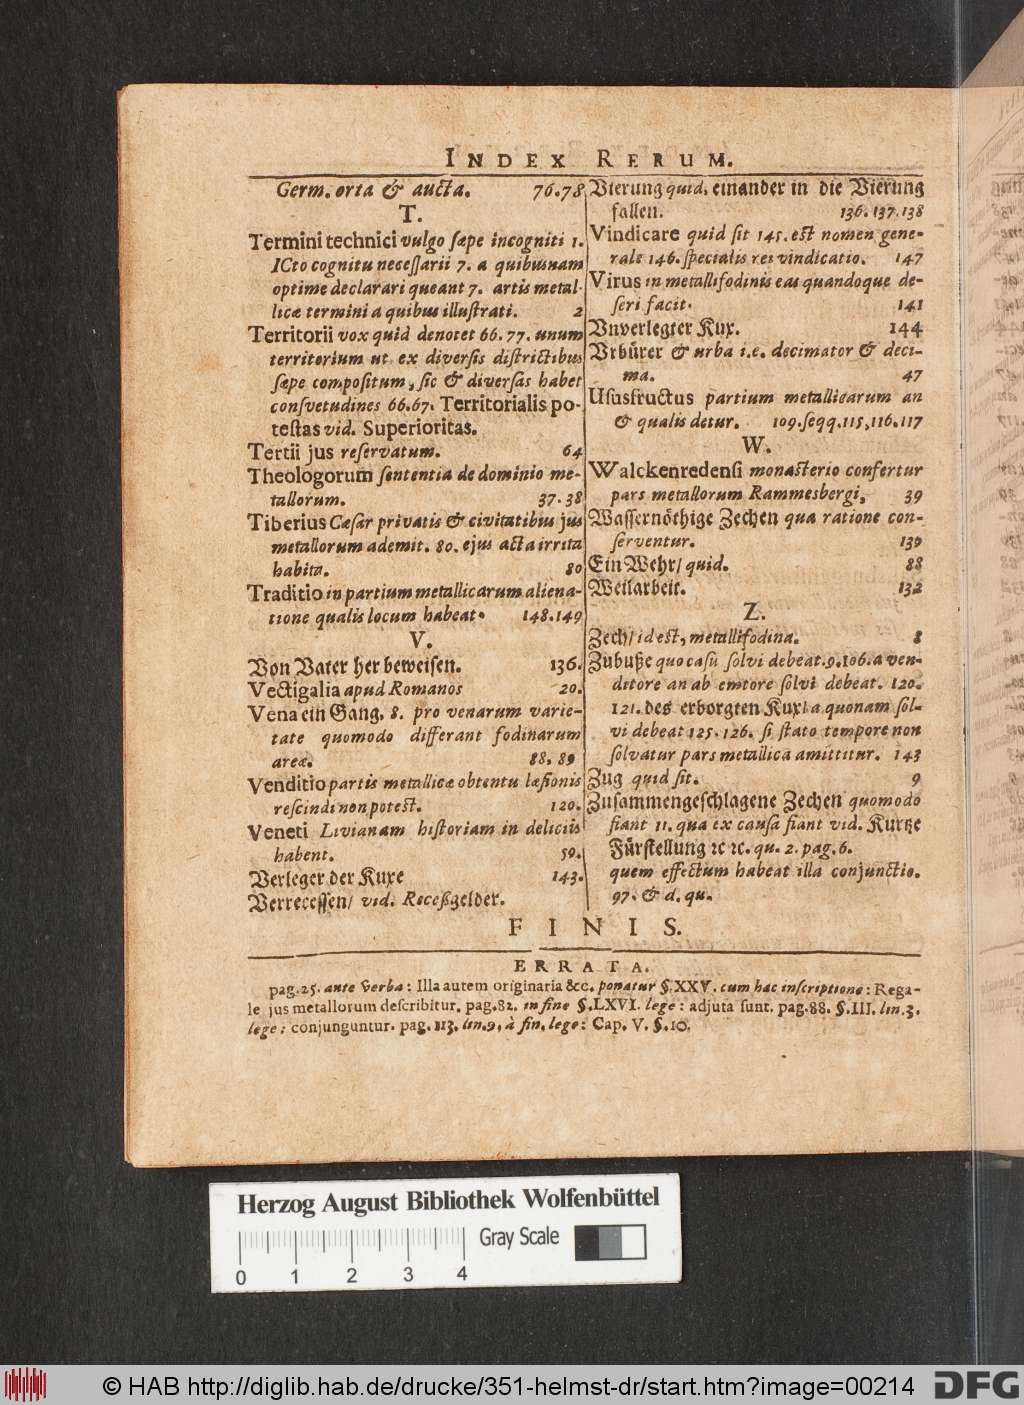 INDEX RERUM.
Germ. orta & aucta. 76.78
T.
Termini technici vulgo sæpe incogniti 1.
ICto cognitu necessarii 7. a quibusnam
optime declarari queant 7. artis metal-
licæ termini a quibus illustrati. 2
Territorii vox quid denotet 66. 77. unum
territorium ut ex diversis districtibus
sæpe compositum, sic & diversas habet
consvetudines 66.67. Territorialis po-
testas vid. Superioritas.
Tertii jus reservatum. 64
Theologorum sententia de dominio me-
tallorum. 37.38
Tiberius Cæsar privatis & civitatibus jus
metallorum ademit. 80. ejus acta irrita
habita. 80
Traditio in partium metallicarum aliena-
tione qualis locum habeat. 148.149
V.
Von Vater her beweisen. 136.
Vectigalia apud Romanos 20.
Vena ein Gang. 8. pro venarum varie-
tate quomodo differant fodinarum
areæ. 88. 89
Venditio partis metallicæ obtentu læsionis
rescindi non potest. 120.
Veneti Livianam historiam in deliciis
habent. 59.
Verleger der Kuxe 143.
Verrecessen/ vid. Receßgelder.
Vierung quid, einander in die Vierung
fallen. 136.137.138
Vindicare quid sit 145. est nomen gene-
rale 146. specialis rei vindicatio. 147
Virus in metallifodinis eas quandoque de-
seri facit. 141
Vnverlegter Kux. 144
Vrbürer & urba i.e. decimator & deci-
ma. 47
Ususfructus partium metallicarum an
& qualis detur. 109.seqq.115,116.117
W.
Walckenredensi monasterio confertur
pars metallorum Rammesbergi, 39
Wassernöthige Zechen qua ratione con-
serventur. 139
Ein Wehr/ quid. 88
Weilarbeit. 132
Z.
Zech/ id est, metallifodina. 8
Zubuße quo casu solvi debeat. 9.106. a ven-
ditore an ab emtore solvi debeat. 120.
121. des erborgten Kux/ a quonam sol-
vi debeat 125. 126. si stato tempore non
solvatur pars metallica amittitur. 143
Zug quid sit. 9
Zusammengeschlagene Zechen quomodo
fiant 11. qua ex causa fiant vid. Kurtze
Fürstellung ꝛc ꝛc. qu. 2. pag. 6.
quem effectum habeat illa conjunctio.
97. & d. qu.
FINIS.
ERRATA.
pag. 25. ante verba: Illa autem originaria &c. ponatur §. XXV. cum hac inscriptione: Rega-
le jus metallorum describitur. pag. 82. in fine §. LXVI. lege: adjuta sunt. pag. 88. §. III. lin. 3.
lege: conjunguntur. pag. 113. lin. 9, à fin. lege: Cap. V. §. 10.
Herzog August Bibliothek Wolfenbüttel
Gray Scale
0 1 2 3 4
© HAB http://diglib.hab.de/drucke/351-helmst-dr/start.htm?image=00214
DFG